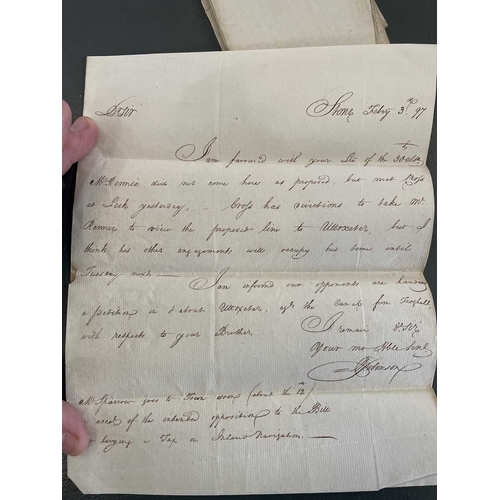 Dr Sir
Stone Febry 3rd 97
I am favored with your Lre of the 30 ulto
Mr Rennie did not come here as proposed, but met Cross
at Leek yesterday. — Cross has directions to take Mr
Rennie to view the proposed line to Uttoxeter, but I
think his other engagements will occupy his time until
Tuesday next. —
I am informed our opponents are handing
a petition in & about Uttoxeter, agt the Canal from Froghall
with respects to your Brother.
I remain Dr Sir
Your mo Obt Servt
Robinson
Mr Sparrow goes to Town soon (about the 12th)
on acct of the intended opposition to the Bill
laying a Tax on Inland Navigation. —